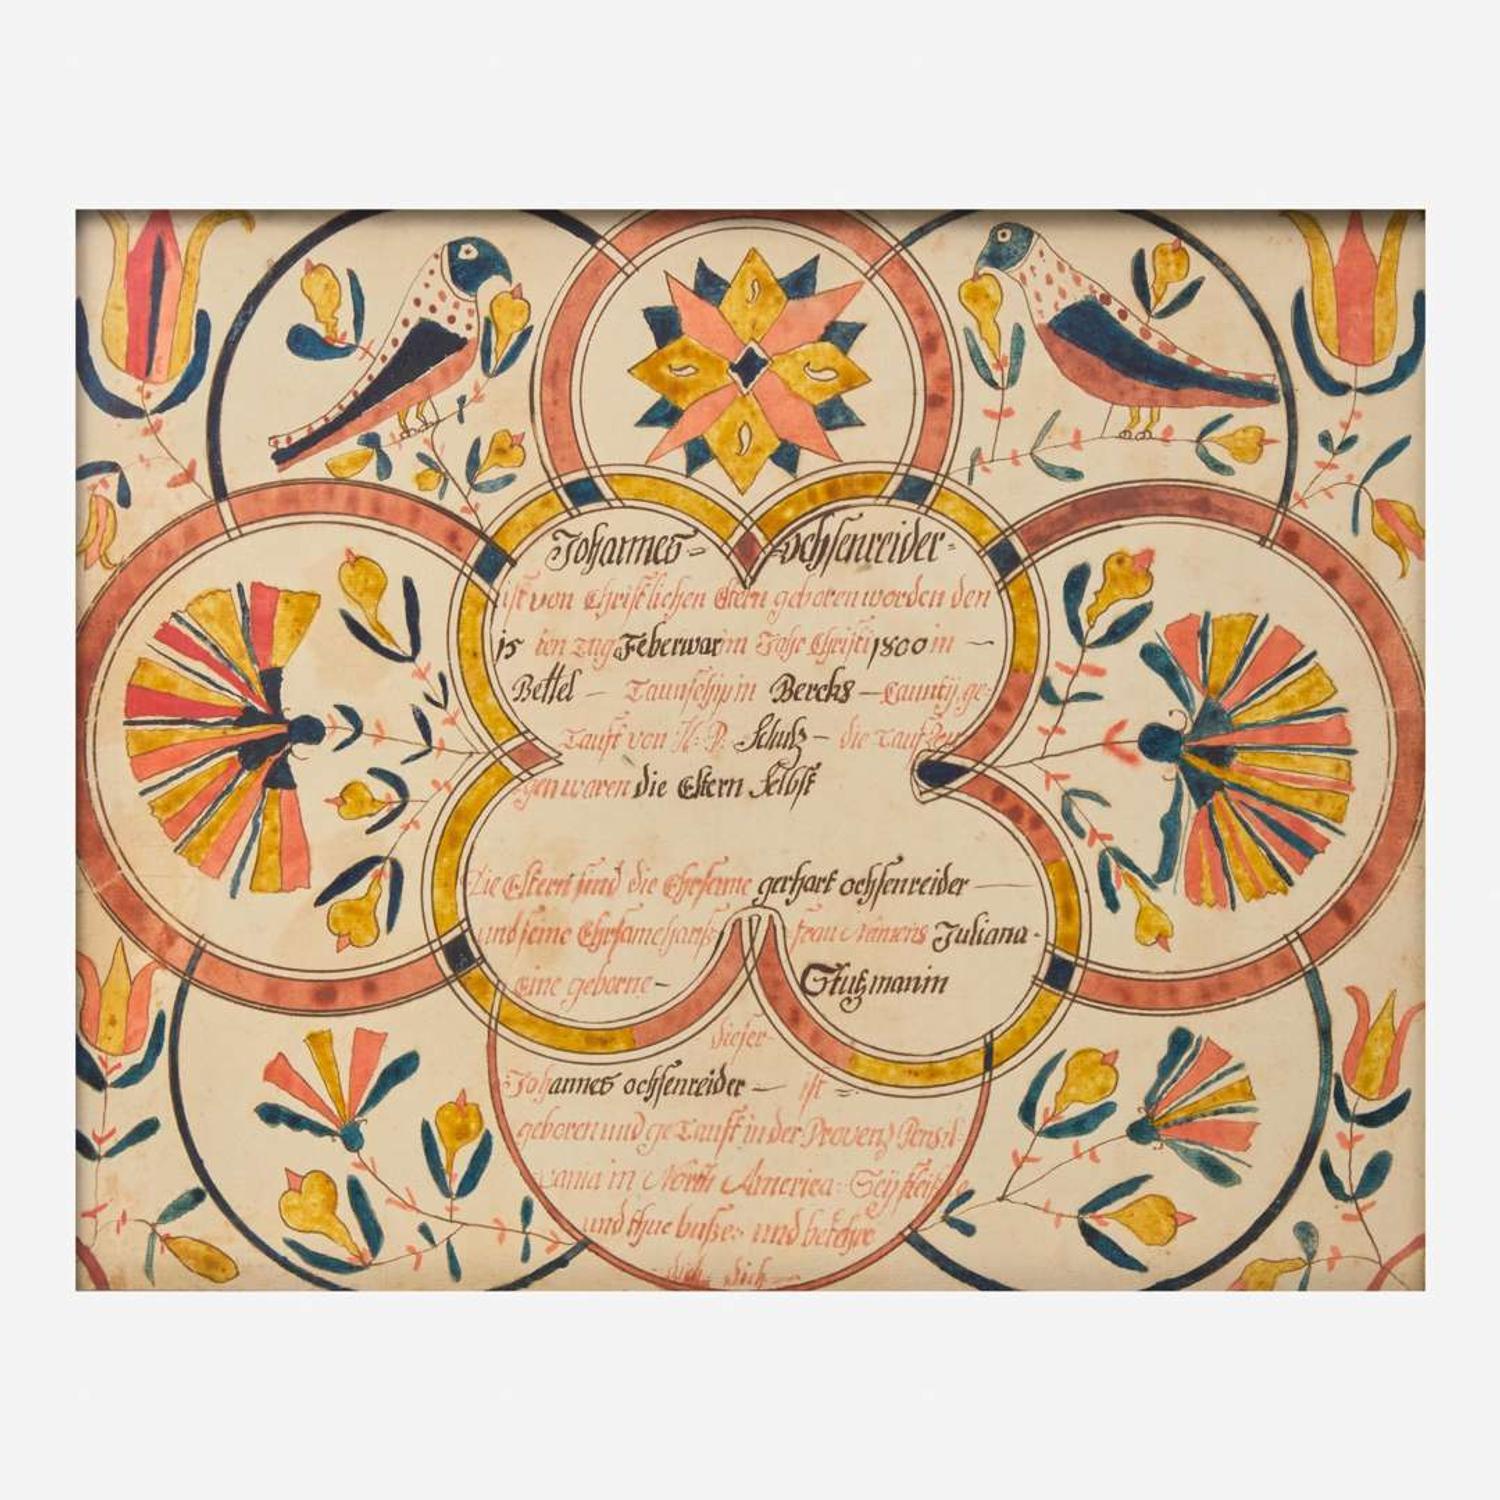 Johannes= ochsenreider=
ist von Christlichen Eltern geboren worden den
15 ten tag Feberwar im Jahr Christi 1800 in —
Bettel — Taunschip in Bercks — Caunty ge=
Tauft von H: P: Schulz — die Tauf Zeu
gen waren die Eltern Selbst
Die Eltern sind die Ehrsame gerhart ochsenreider —
und seine Ehrsame haus= frau Namens Juliana=
Eine geborne — Stutzmanin
dieser
Johannes ochsenreider — ist =
geboren und geTauft in der Provenz Pensil=
vania in North America:
und thue busse: und bekehre
dich